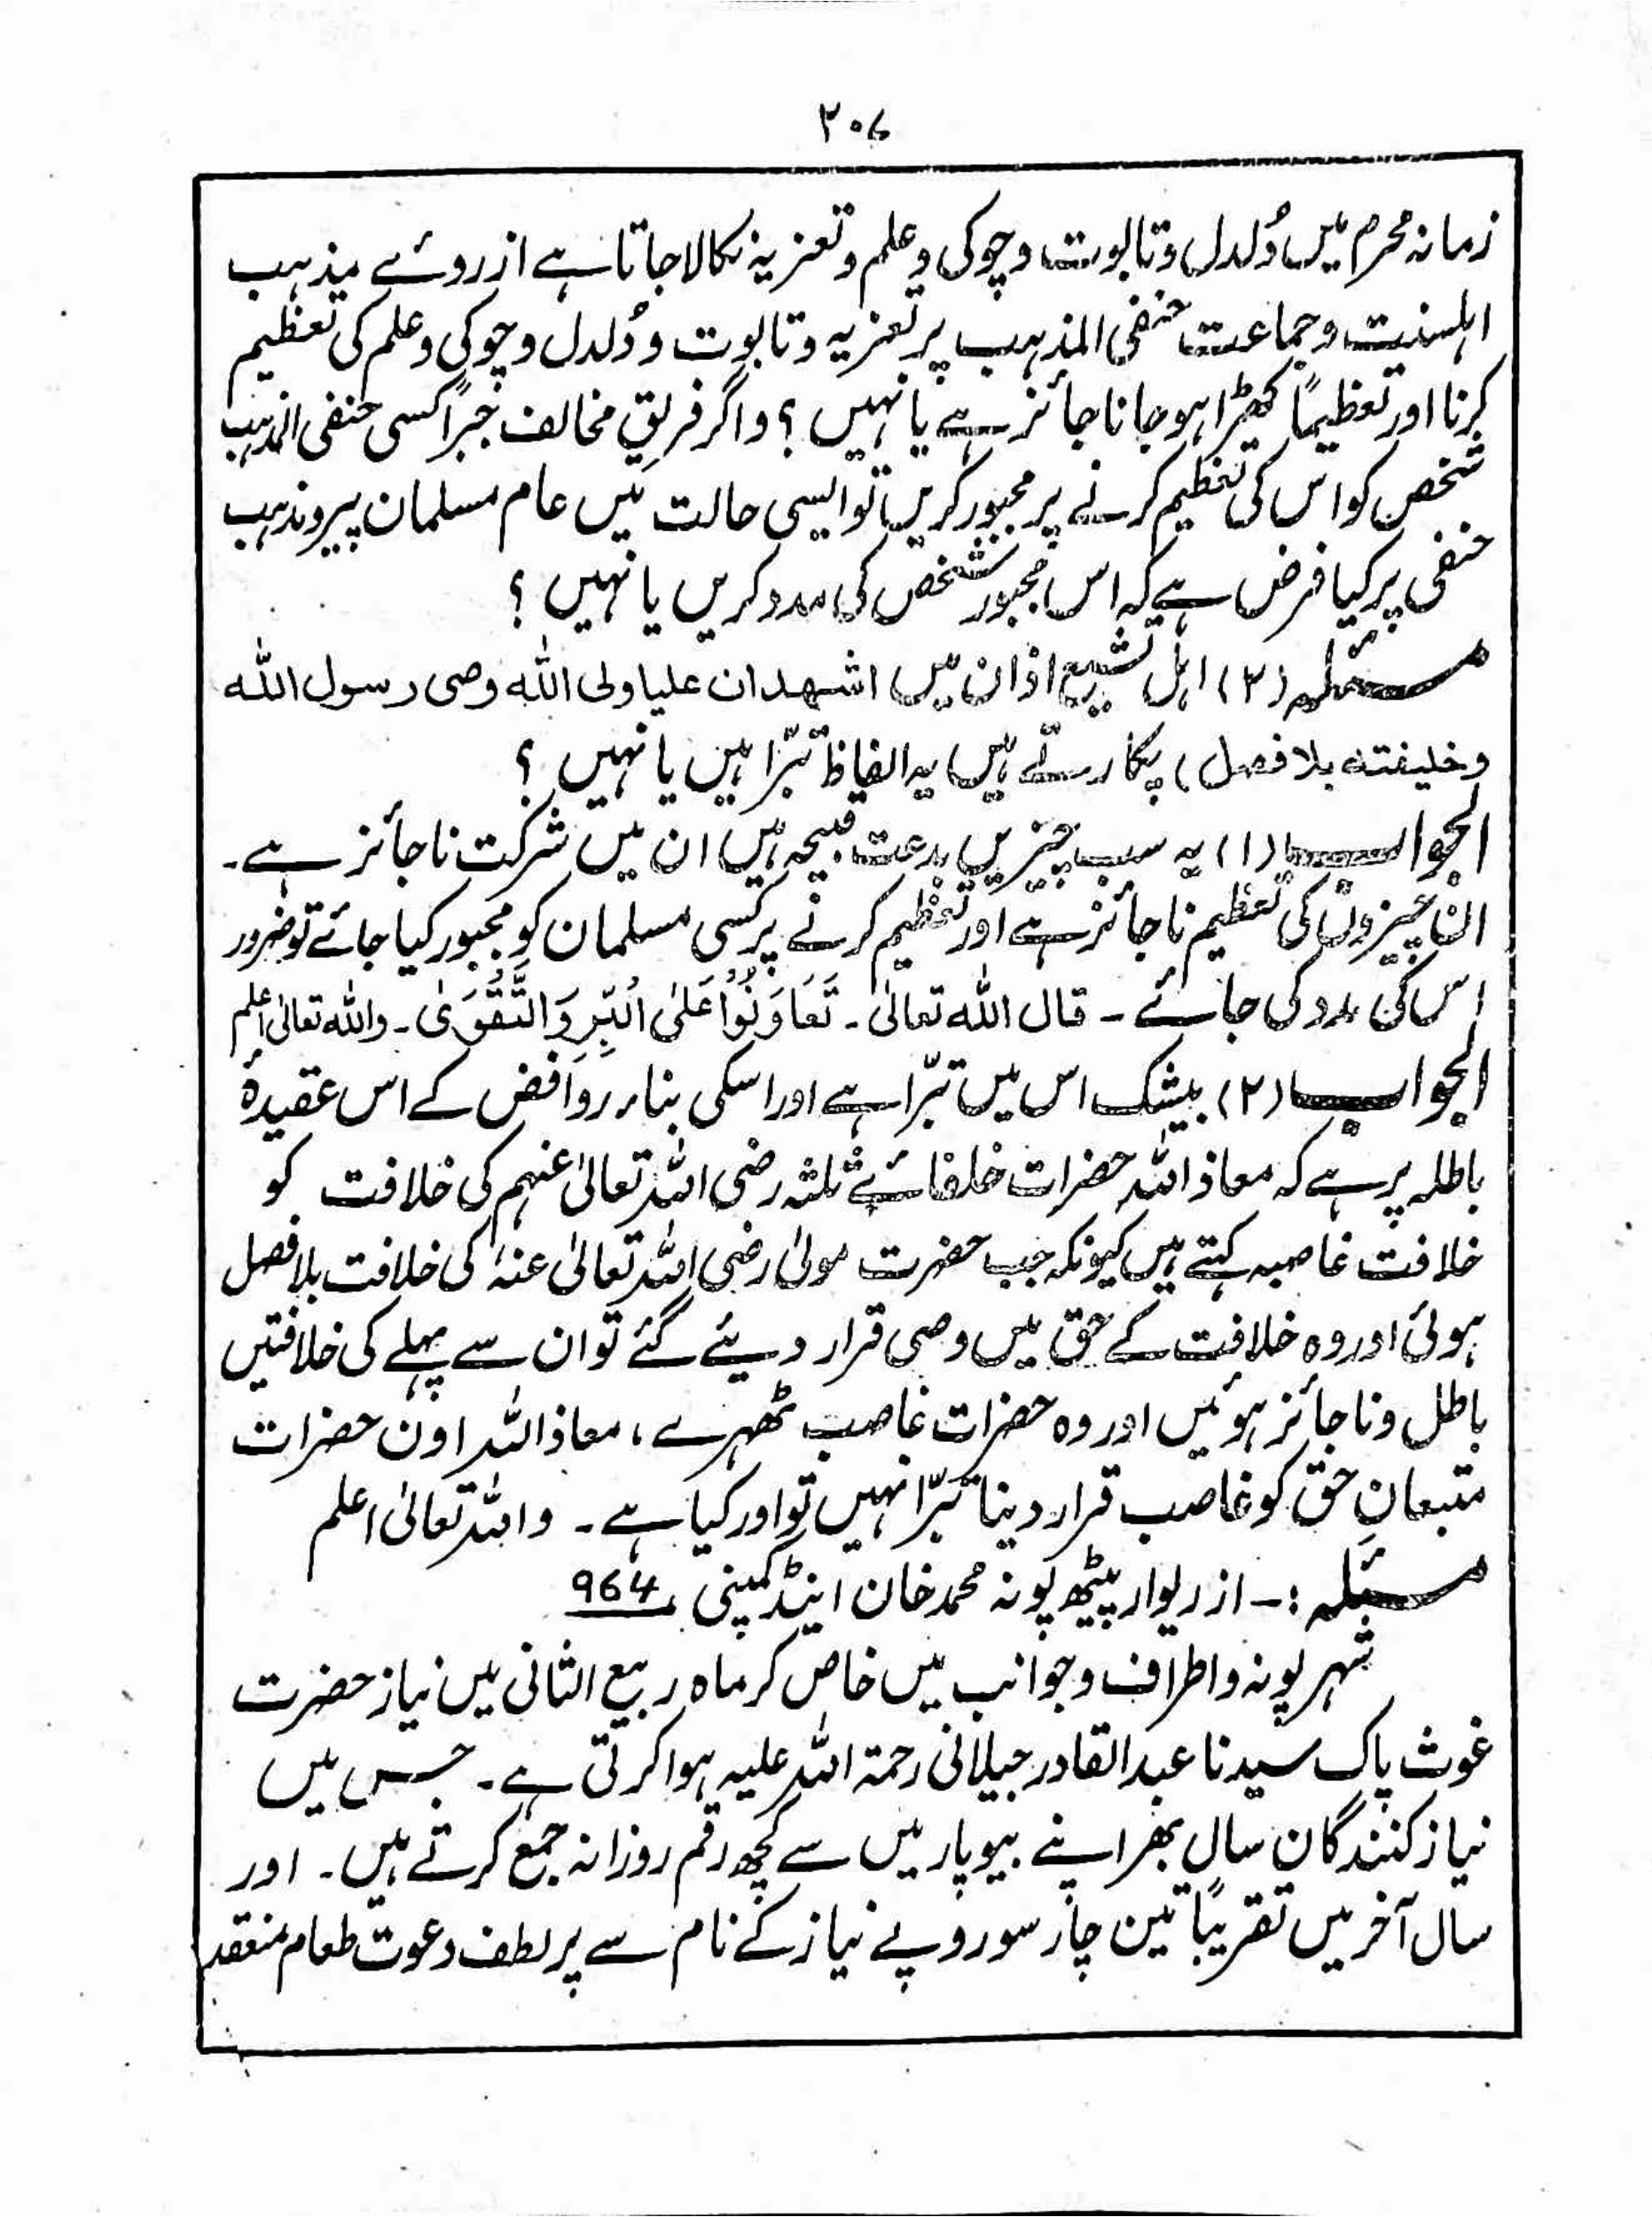 ۲۰۷
زمانہ محرم میں دُلدل و تابوت و چوکی و علم و تعزیہ نکالا جاتا ہے از روئے مذہب
اہلسنت و جماعت حنفی المذہب پر تعزیہ و تابوت و دُلدل و چوکی و علم کی تعظیم
کرنا اور تعظیماً کھڑا ہو جانا جائز ہے یا نہیں ؟ و اگر فریقِ مخالف جبراً کسی حنفی المذہب
شخص کو اس کی تعظیم کرنے پر مجبور کریں تو ایسی حالت میں عام مسلمان پیرو مذہب
حنفی پر کیا فرض ہے کہ اس مجبور شخص کی مدد کریں یا نہیں ؟
مسئلہ (۲) اہل تشیع اذان میں اشہدان علیا ولی اللہ وصی رسول اللہ
وخلیفتہ بلا فصل) پکارتے ہیں یہ الفاظ تبرّا ہیں یا نہیں ؟
الجواب (۱) یہ سب چیزیں بدعت قبیحہ ہیں ان میں شرکت ناجائز ہے۔
ان چیزوں کی تعظیم ناجائز ہے اور تعظیم کرنے پر کسی مسلمان کو مجبور کیا جائے تو ضرور
اس کی مدد کی جائے ۔ قال اللہ تعالیٰ ۔ تَعَاوَنُوْا عَلَی الْبِرِّ وَالتَّقْوَیٰ ۔ واللہ تعالیٰ اعلم
الجواب (۲) بیشک اس میں تبرّا ہے اور اسکی بناء روافض کے اس عقیدۂ
باطلہ پر ہے کہ معاذ اللہ حضرات خلفائے ثلٰثہ رضی اللہ تعالیٰ عنہم کی خلافت کو
خلافت غاصبہ کہتے ہیں کیونکہ جب حضرت مولیٰ رضی اللہ تعالیٰ عنہٗ کی خلافت بلا فصل
ہوئی اور وہ خلافت کے حق میں وصی قرار دیئے گئے تو ان سے پہلے کی خلافتیں
باطل و ناجائز ہوئیں اور وہ حضرات غاصب ٹھہرے ، معاذ اللہ اون حضرات
متبعانِ حق کو غاصب قرار دینا تبرّا نہیں تو اور کیا ہے ۔ واللہ تعالیٰ اعلم
مسئلہ :۔ از ریوار پیٹھ پونہ محمد خان اینڈ کمپنی 964
شہر پونہ و اطراف و جوانب میں خاص کر ماہ ربیع الثانی میں نیاز حضرت
غوث پاک سیدنا عبدالقادر جیلانی رحمۃ اللہ علیہ ہوا کرتی ہے ۔ جس میں
نیاز کنندگان سال بھر اپنے بیوپار میں سے کچھ رقم روزانہ جمع کرتے ہیں ۔ اور
سال آخر میں تقریباً تین چار سو روپے نیاز کے نام سے پر لطف دعوت طعام منعقد